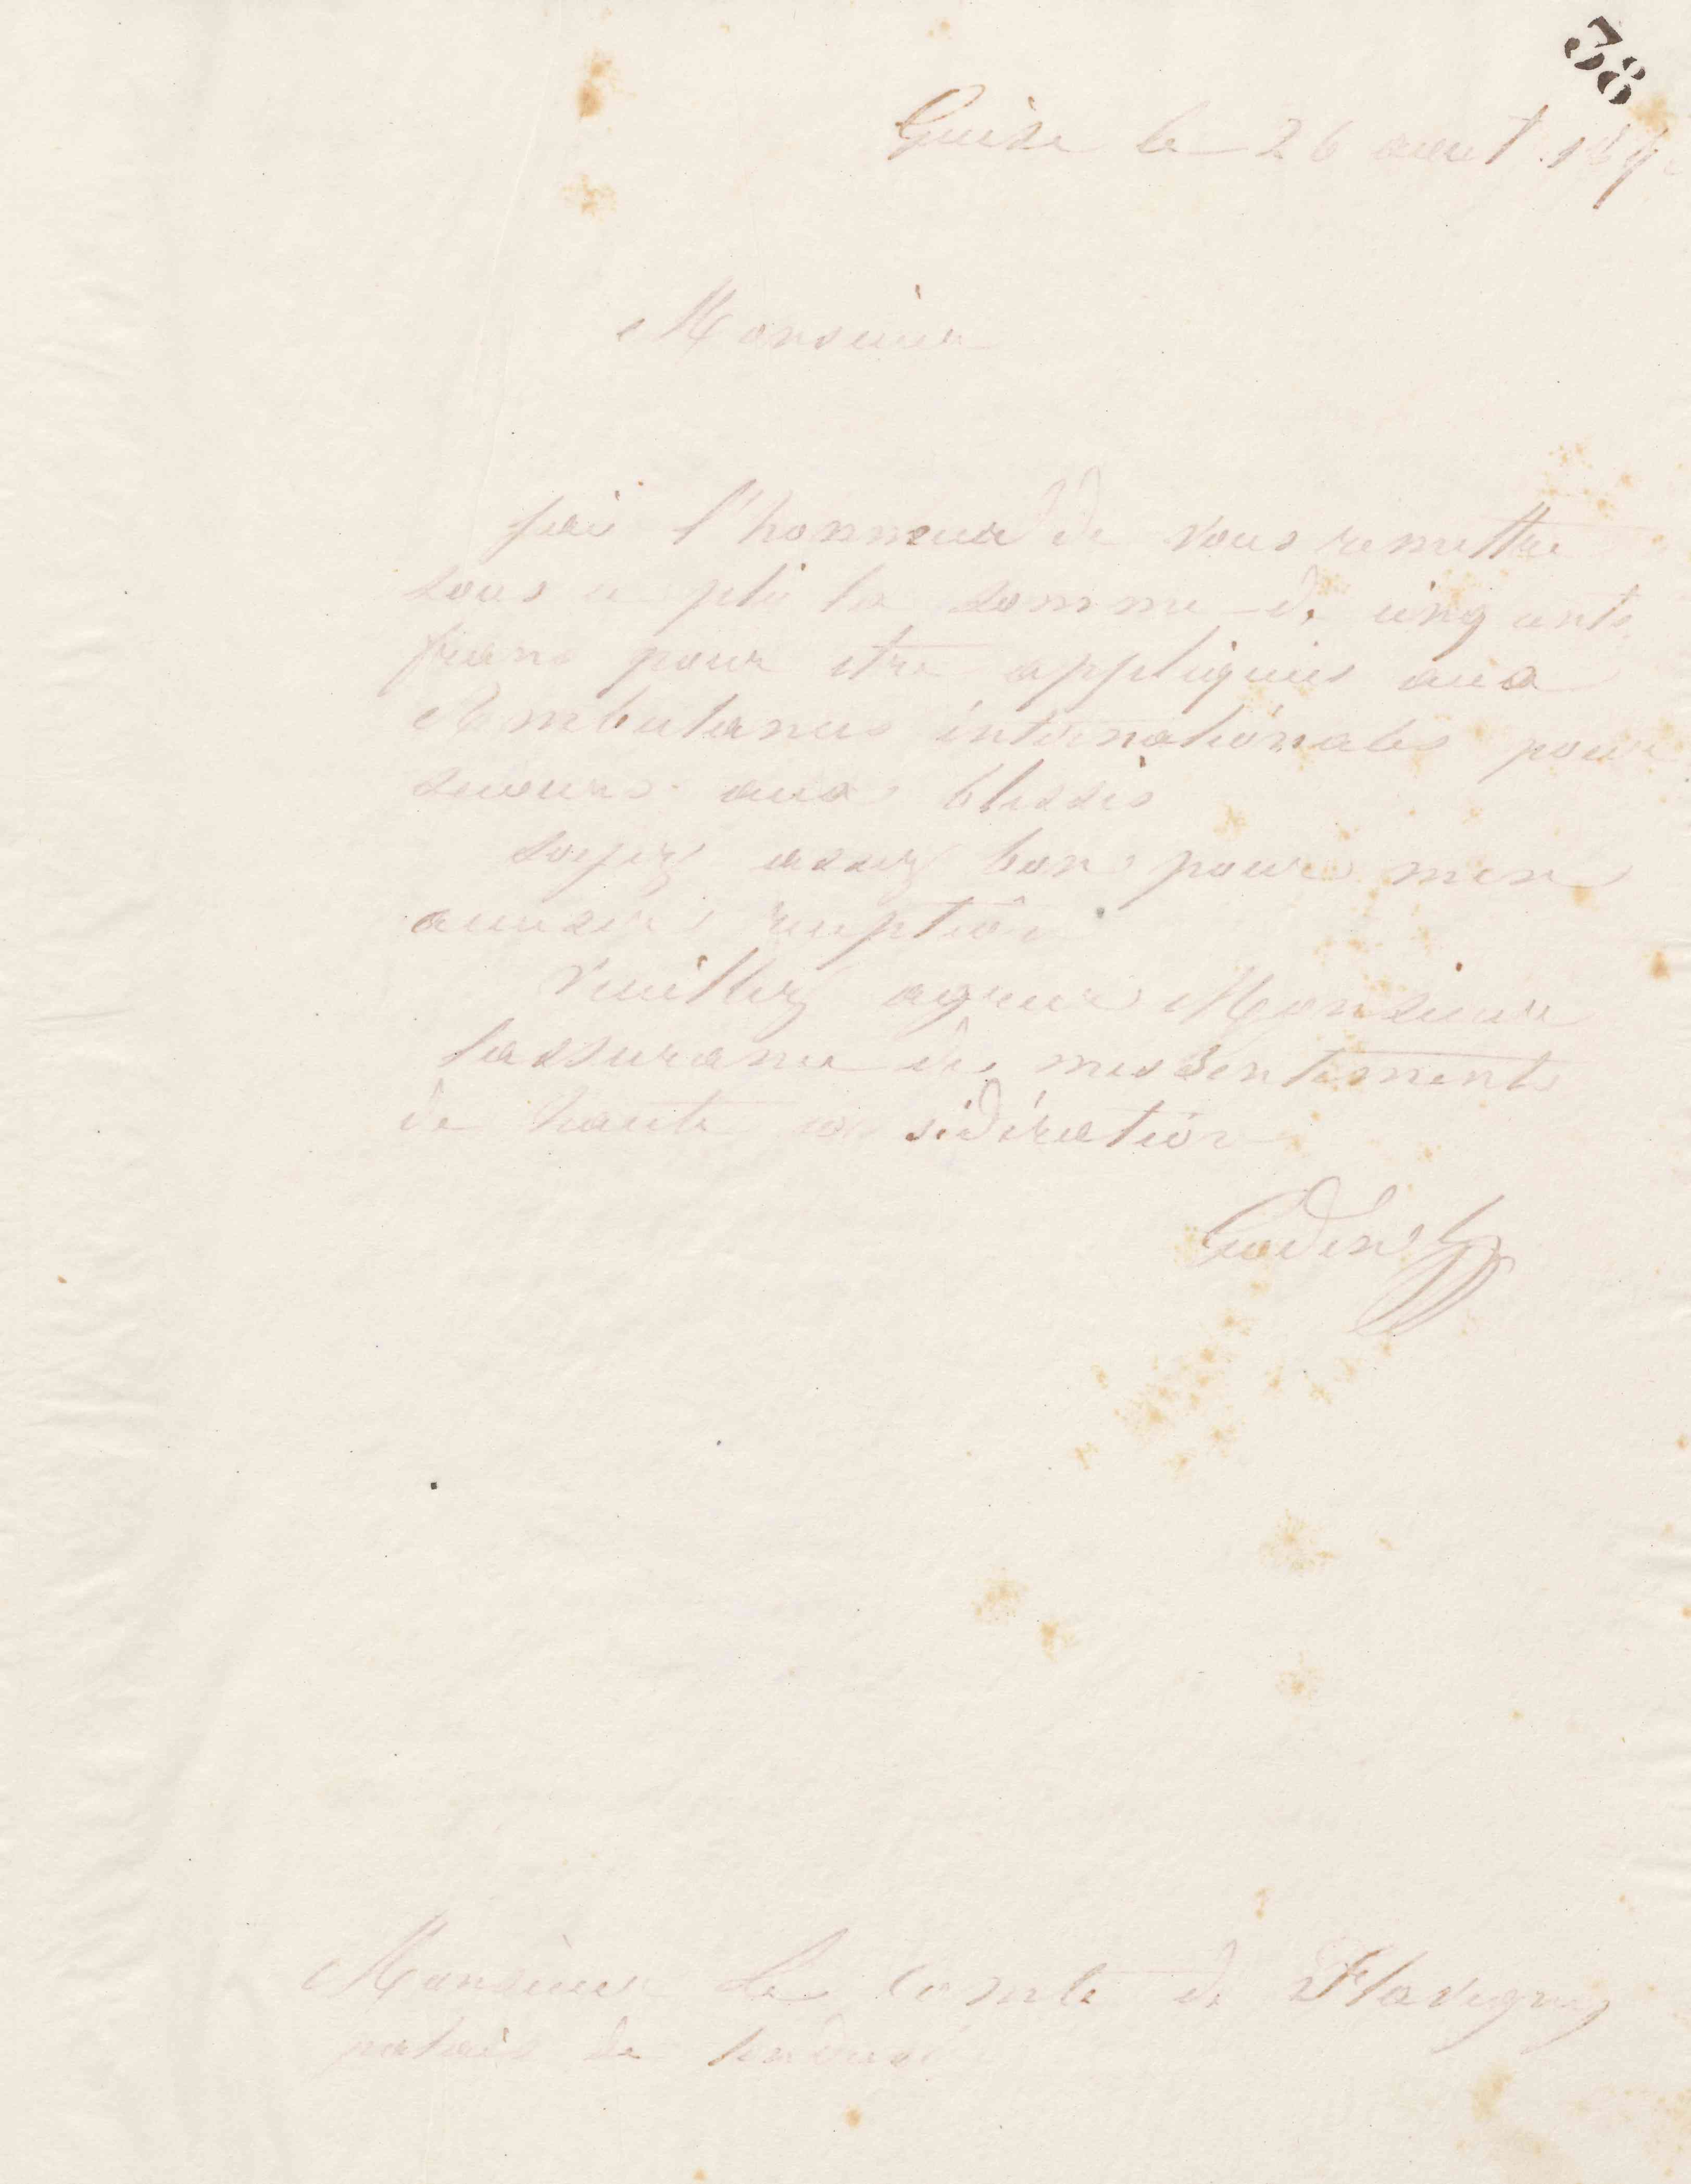 38
Guise le 26 aout 187
Monsieur
jai l'honneur de vous remettre
sous ce pli la somme de cinq cents
francs pour etre appliquées aux
Ambulances internationales pour
secours aux blessés
soyez assez bon pour men
accuser reception
Veuillez agreer Monsieur
lassurance de mes sentiments
de haute considération
Godin
Monsieur Le Comte de Flavigny
palais de